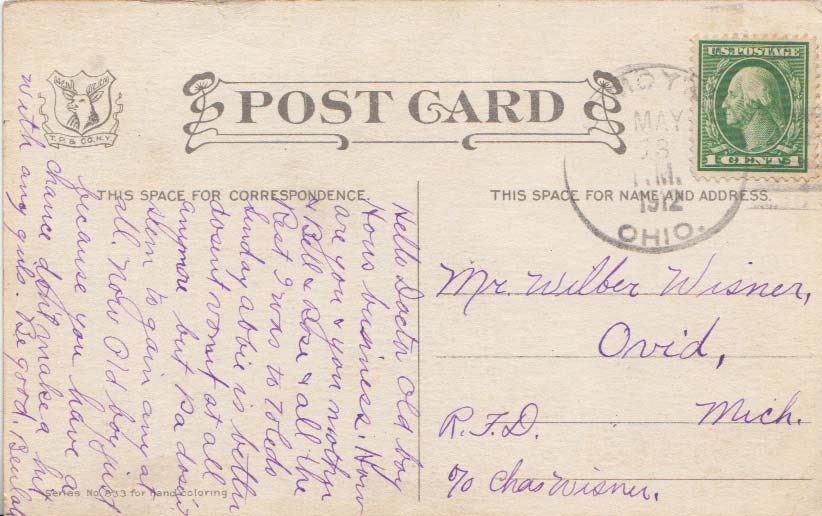 U.S. POSTAGE
1 CENT 1
MAY
P.M.
1912
OHIO.
T. P. & CO. N.Y.
POST CARD
THIS SPACE FOR CORRESPONDENCE.
THIS SPACE FOR NAME AND ADDRESS.
Hello Doctor Old boy
Hows business. How
are you & you mother
& Bell & Rose & all the
Rest I was to Toledo
Sunday abbie is better
dosent vomit at all
anymore but Pa dosnt
seem to gain any at
all. Now Old boy just
because you have a
chance dont make a hit
with any guls. Be good. Beulah
Mr. Wilber Wisner,
Ovid,
Mich.
R.F.D.
c/o Chas Wisner.
Series No. 833 for hand coloring